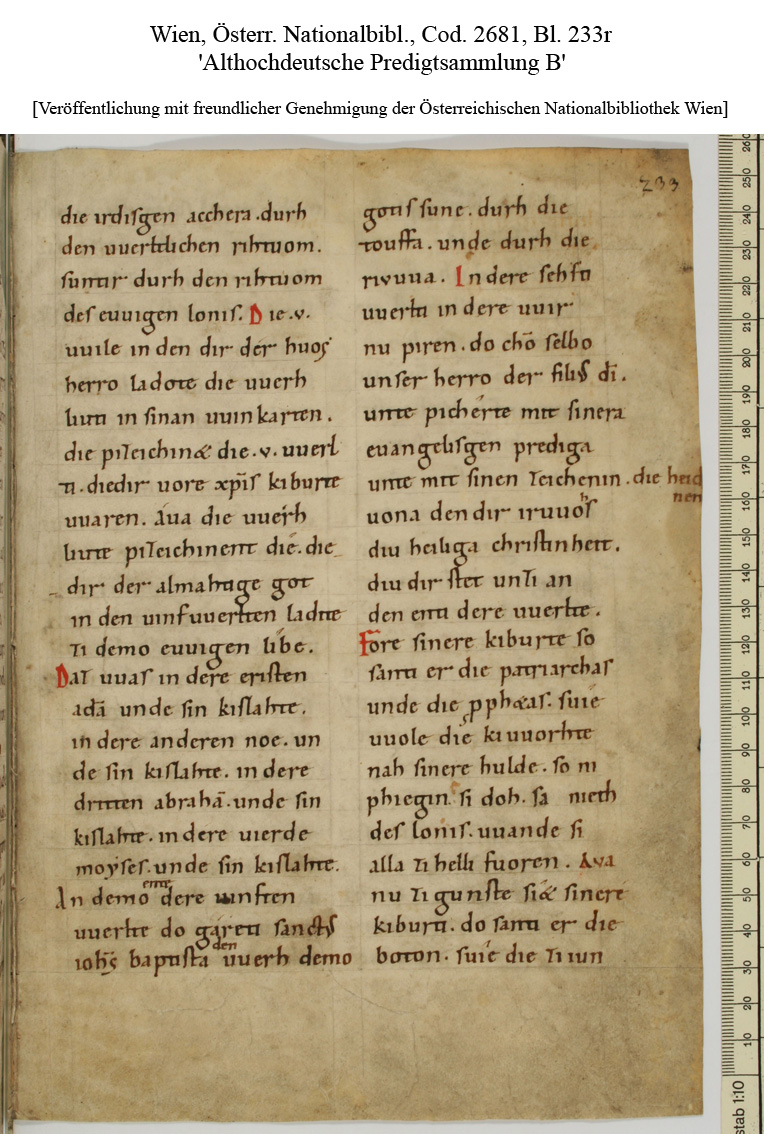 Wien, Österr. Nationalbibl., Cod. 2681, Bl. 233r
'Althochdeutsche Predigtsammlung B'
[Veröffentlichung mit freundlicher Genehmigung der Österreichischen Nationalbibliothek Wien]
233
die irdiſgen acchera .durh
den uuerltlichen rihtuom.
ſuntir durh den rihtuom
deſ euuigen loniſ. Die .v.
uuile in den dir der huoſ
herro ladote die uuerh
liuti in ſinan uuinkarten .
die pizeichinet die .v. uuerl
ti .diedir uore xp̄iſ kiburte
uuaren. áua die uuerh
liute pizeichinent dié. die
dir der almahtige got
in den uinf uuerlten ladite
zi demo euuigen libe.
Daz uuaſ in dere eriſten
adā unde ſin kiſlahte.
in dere anderen noe. un
de ſin kiſlahte. in dere
dritten abrahā .unde ſin
kiſlahte. in dere uierde
moyſeſ. unde ſin kiſlahte.
An demo ente dere uinften
uuerlte do gareti ſanctuſ
ioh̄s baptiſta den uuerh demo
gotiſ ſune. durh die
touffa. unde durh die
rivuua. In dere ſehſti
uuerlti in dere uuir
nu piren. do chō ſelbo
unſer herro der filiuſ dī.
unte picherte mit ſinera
euangeliſgen prediga
unte mit ſinen zeichenin .die heid
nen
uona den dir iruuohſ
diu heiliga chriſtinheit.
diu dir ſtet unzi an
den enti dere uuerlte.
Fore ſinere kiburte ſo
ſanti er die patriarchaſ
unde die p̄phetaſ. ſuie
uuole die kiuuorhte
nah ſinere hulde. ſo ni
phiegin ſi doh. ſa nieth
deſ loniſ. uuande ſi
alla zi helli fuoren . Ava
nu zi gunſte ſiet ſinere
kiburti. do ſanti er die
boton. ſuié die zi iun
260
250
240
230
220
210
200
190
180
170
160
150
140
130
120
110
100
90
80
70
60
50
40
30
20
10
stab 1:10